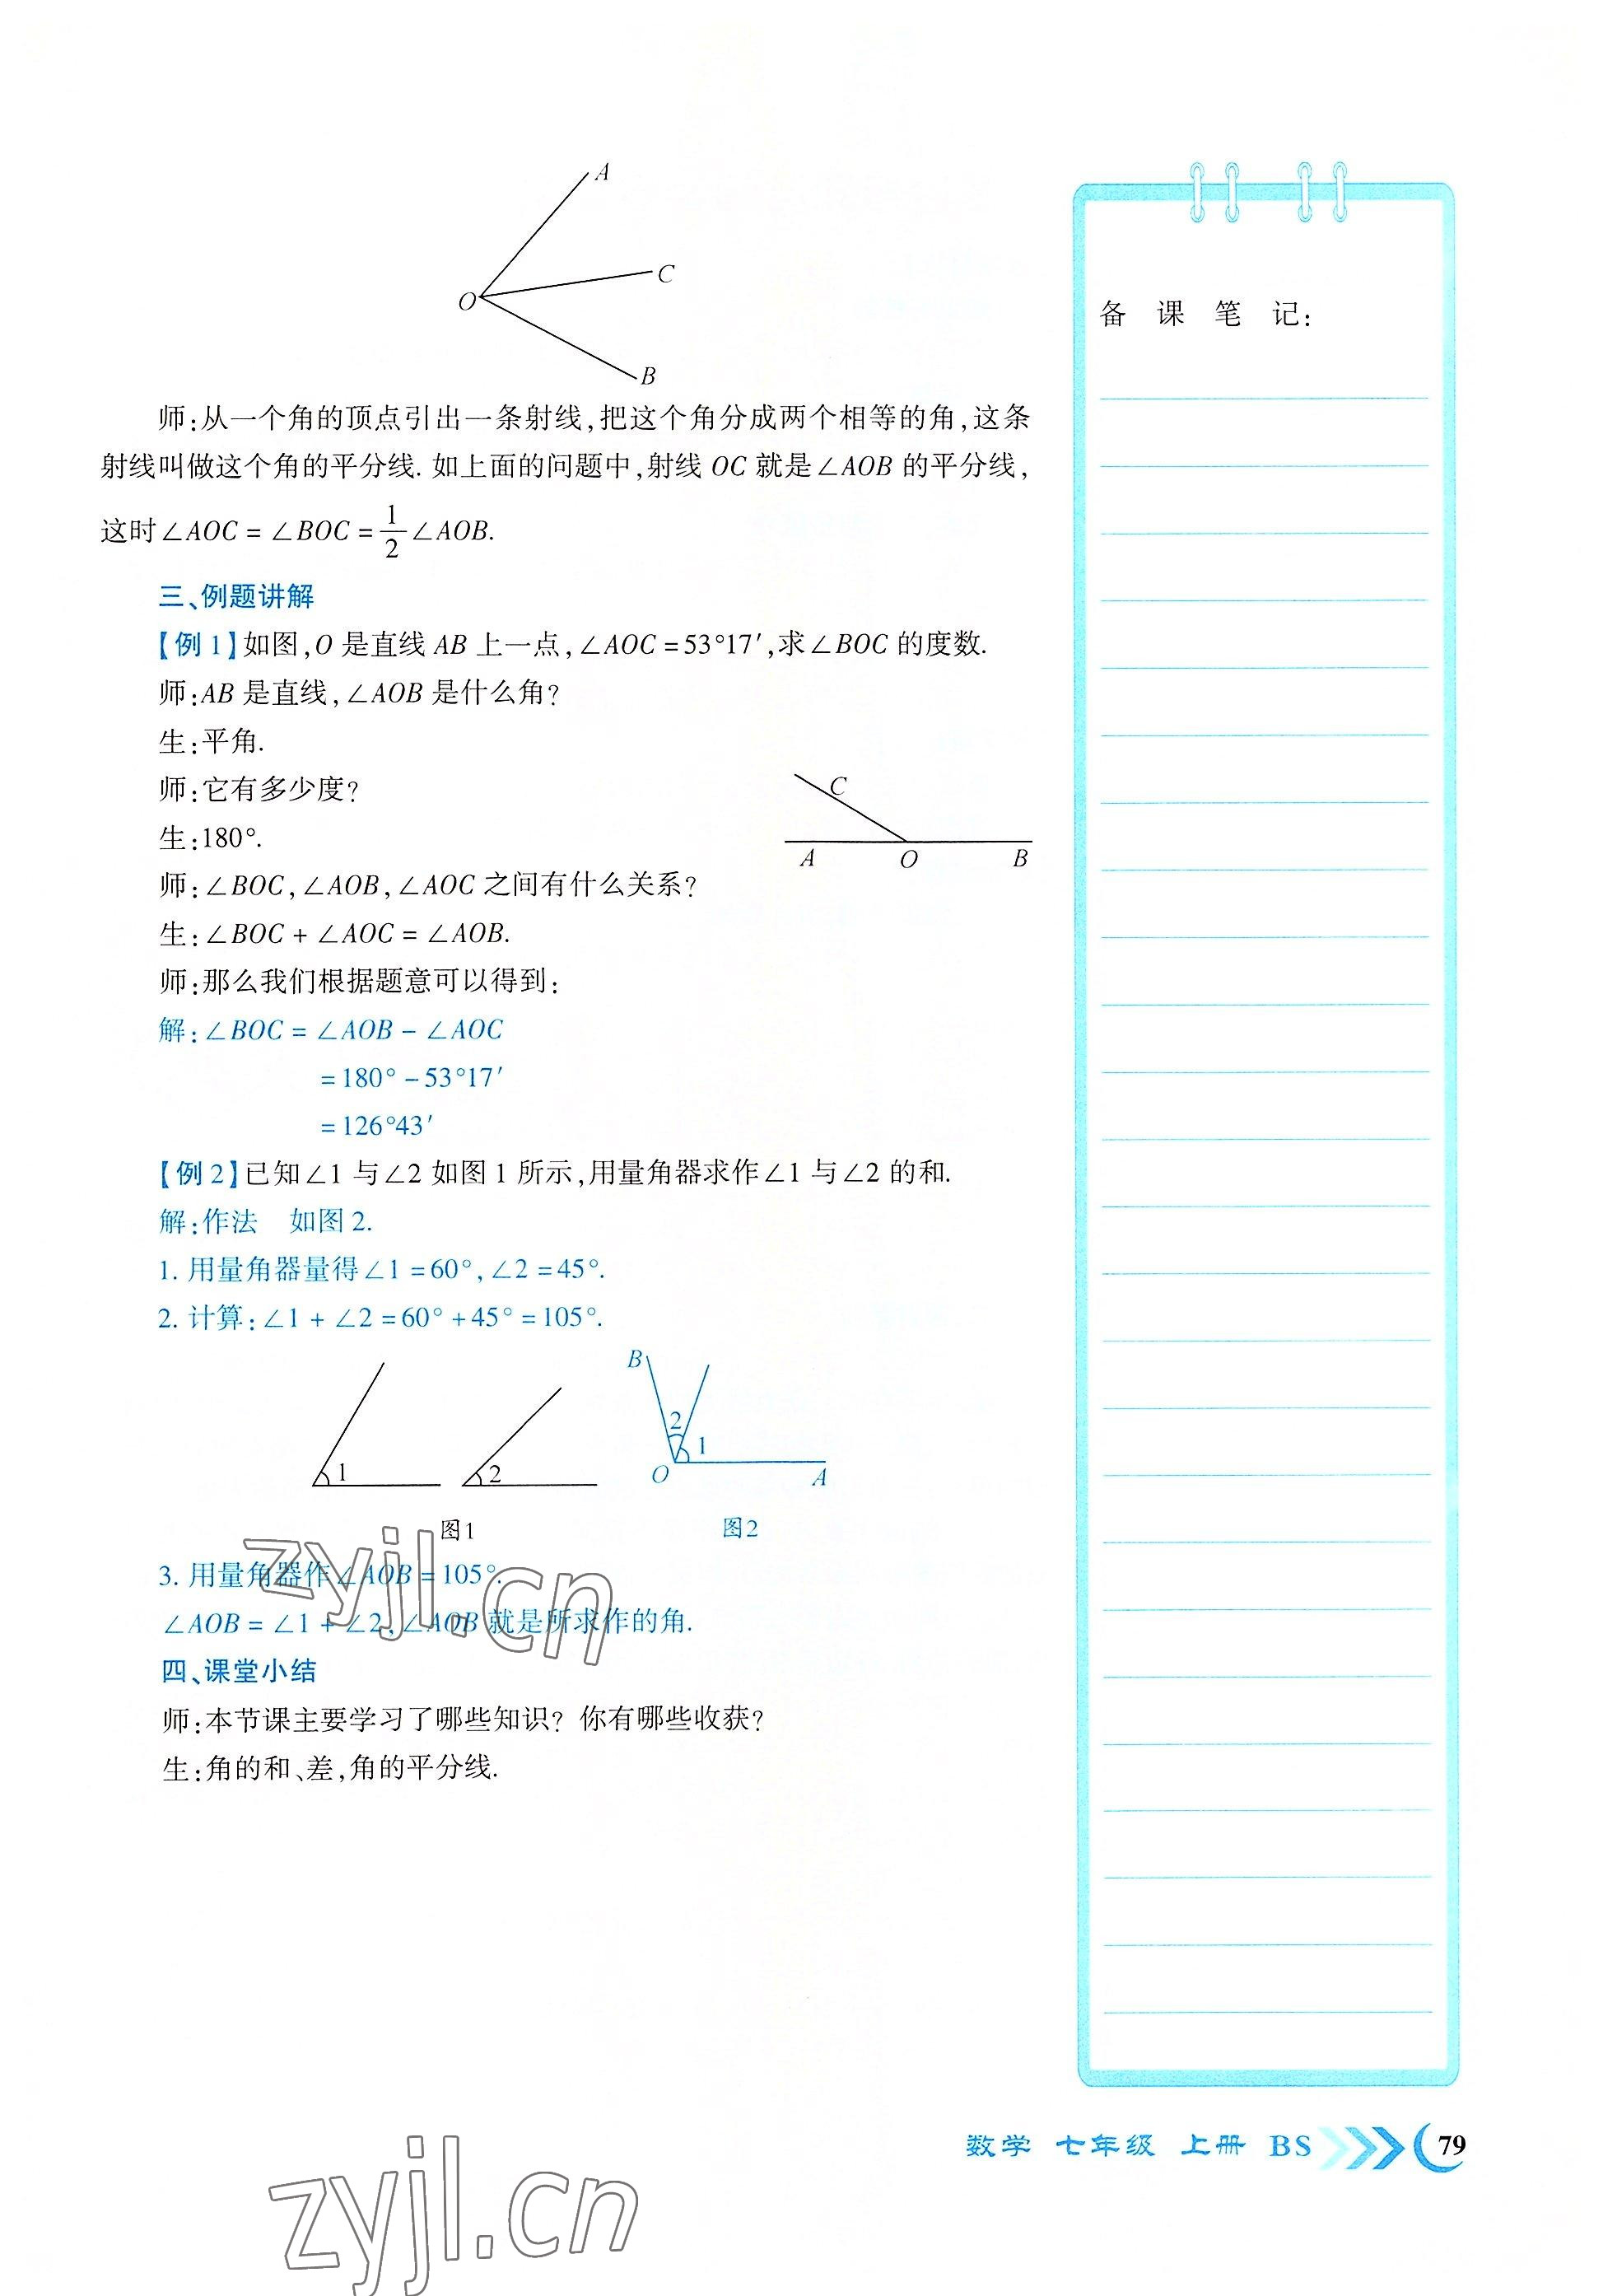 A
C
O
B
师:从一个角的顶点引出一条射线,把这个角分成两个相等的角,这条
射线叫做这个角的平分线. 如上面的问题中,射线 OC 就是∠AOB 的平分线,
这时∠AOC = ∠BOC = 1/2 ∠AOB.
三、例题讲解
【例 1】如图,O 是直线 AB 上一点,∠AOC = 53°17′,求∠BOC 的度数.
师:AB 是直线,∠AOB 是什么角?
生:平角.
师:它有多少度?
生:180°.
C
A O B
师:∠BOC,∠AOB,∠AOC 之间有什么关系?
生:∠BOC + ∠AOC = ∠AOB.
师:那么我们根据题意可以得到:
解:∠BOC = ∠AOB - ∠AOC
= 180° - 53°17′
= 126°43′
【例 2】已知∠1 与∠2 如图 1 所示,用量角器求作∠1 与∠2 的和.
解:作法 如图 2.
1. 用量角器量得∠1 = 60°,∠2 = 45°.
2. 计算:∠1 + ∠2 = 60° + 45° = 105°.
B
2
1
1
2
O
A
图1
图2
3. 用量角器作∠AOB = 105°.
∠AOB = ∠1 + ∠2,∠AOB 就是所求作的角.
四、课堂小结
师:本节课主要学习了哪些知识? 你有哪些收获?
生:角的和、差,角的平分线.
备 课 笔 记:
数学 七年级 上册 BS 79
zyjl.cn
zyjl.cn